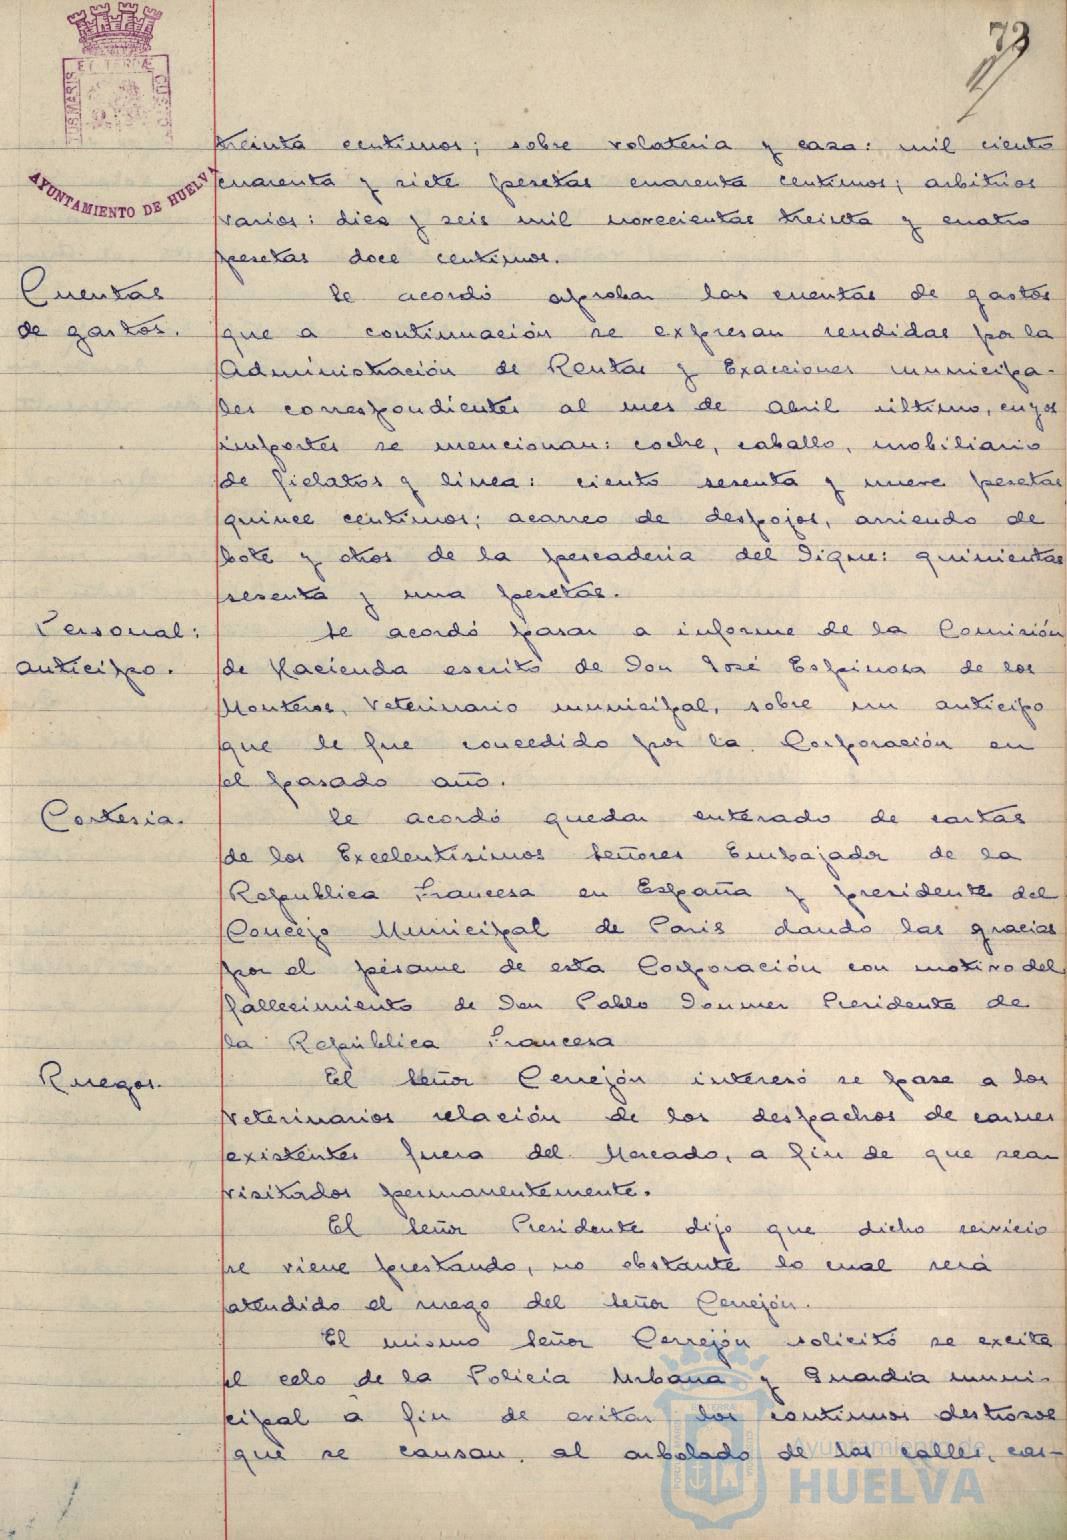 73
treinta centimos; sobre volateria y caza: mil ciento
cuarenta y siete pesetas cuarenta centimos; arbitrios
varios: diez y seis mil novecientas treinta y cuatro
pesetas doce centimos.
Cuentas
de gastos.
Se acordó aprobar las cuentas de gastos
que a continuación se expresan rendidas por la
Administración de Rentas y Exacciones municipa-
les correspondientes al mes de Abril último, cuyos
importes se mencionan: coche, caballo, mobiliario
de fielatos y linea: ciento sesenta y nueve pesetas
quince centimos; acarreo de despojos, arriendo de
bote y otros de la pescaderia del Dique: quinientas
sesenta y una pesetas.
Personal:
anticipo.
Se acordó pasar a informe de la Comisión
de Hacienda escrito de Don José Espinosa de los
Monteros, Veterinario municipal, sobre un anticipo
que le fue concedido por la Corporación en
el pasado año.
Cortesia.
Se acordó quedar enterado de cartas
de los Excelentísimos Señores Embajador de la
República Francesa en España y presidente del
Concejo Municipal de Paris dando las gracias
por el pésame de esta Corporación con motivo del
fallecimiento de Don Pablo Doumer Presidente de
la República Francesa
Ruegos.
El Señor Cerrejón interesó se pase a los
Veterinarios relación de los despachos de carnes
existentes fuera del Mercado, a fin de que sean
visitados permanentemente.
El Señor Presidente dijo que dicho servicio
se viene prestando, no obstante lo cual será
atendido el ruego del Señor Cerrejón.
El mismo Señor Cerrejón solicitó se excite
el celo de la Policía Urbana y Guardia muni-
cipal a fin de evitar los continuos destrozos
que se causan al arbolado de las calles, cas-
AYUNTAMIENTO DE HUELVA
Ayuntamiento de
HUELVA